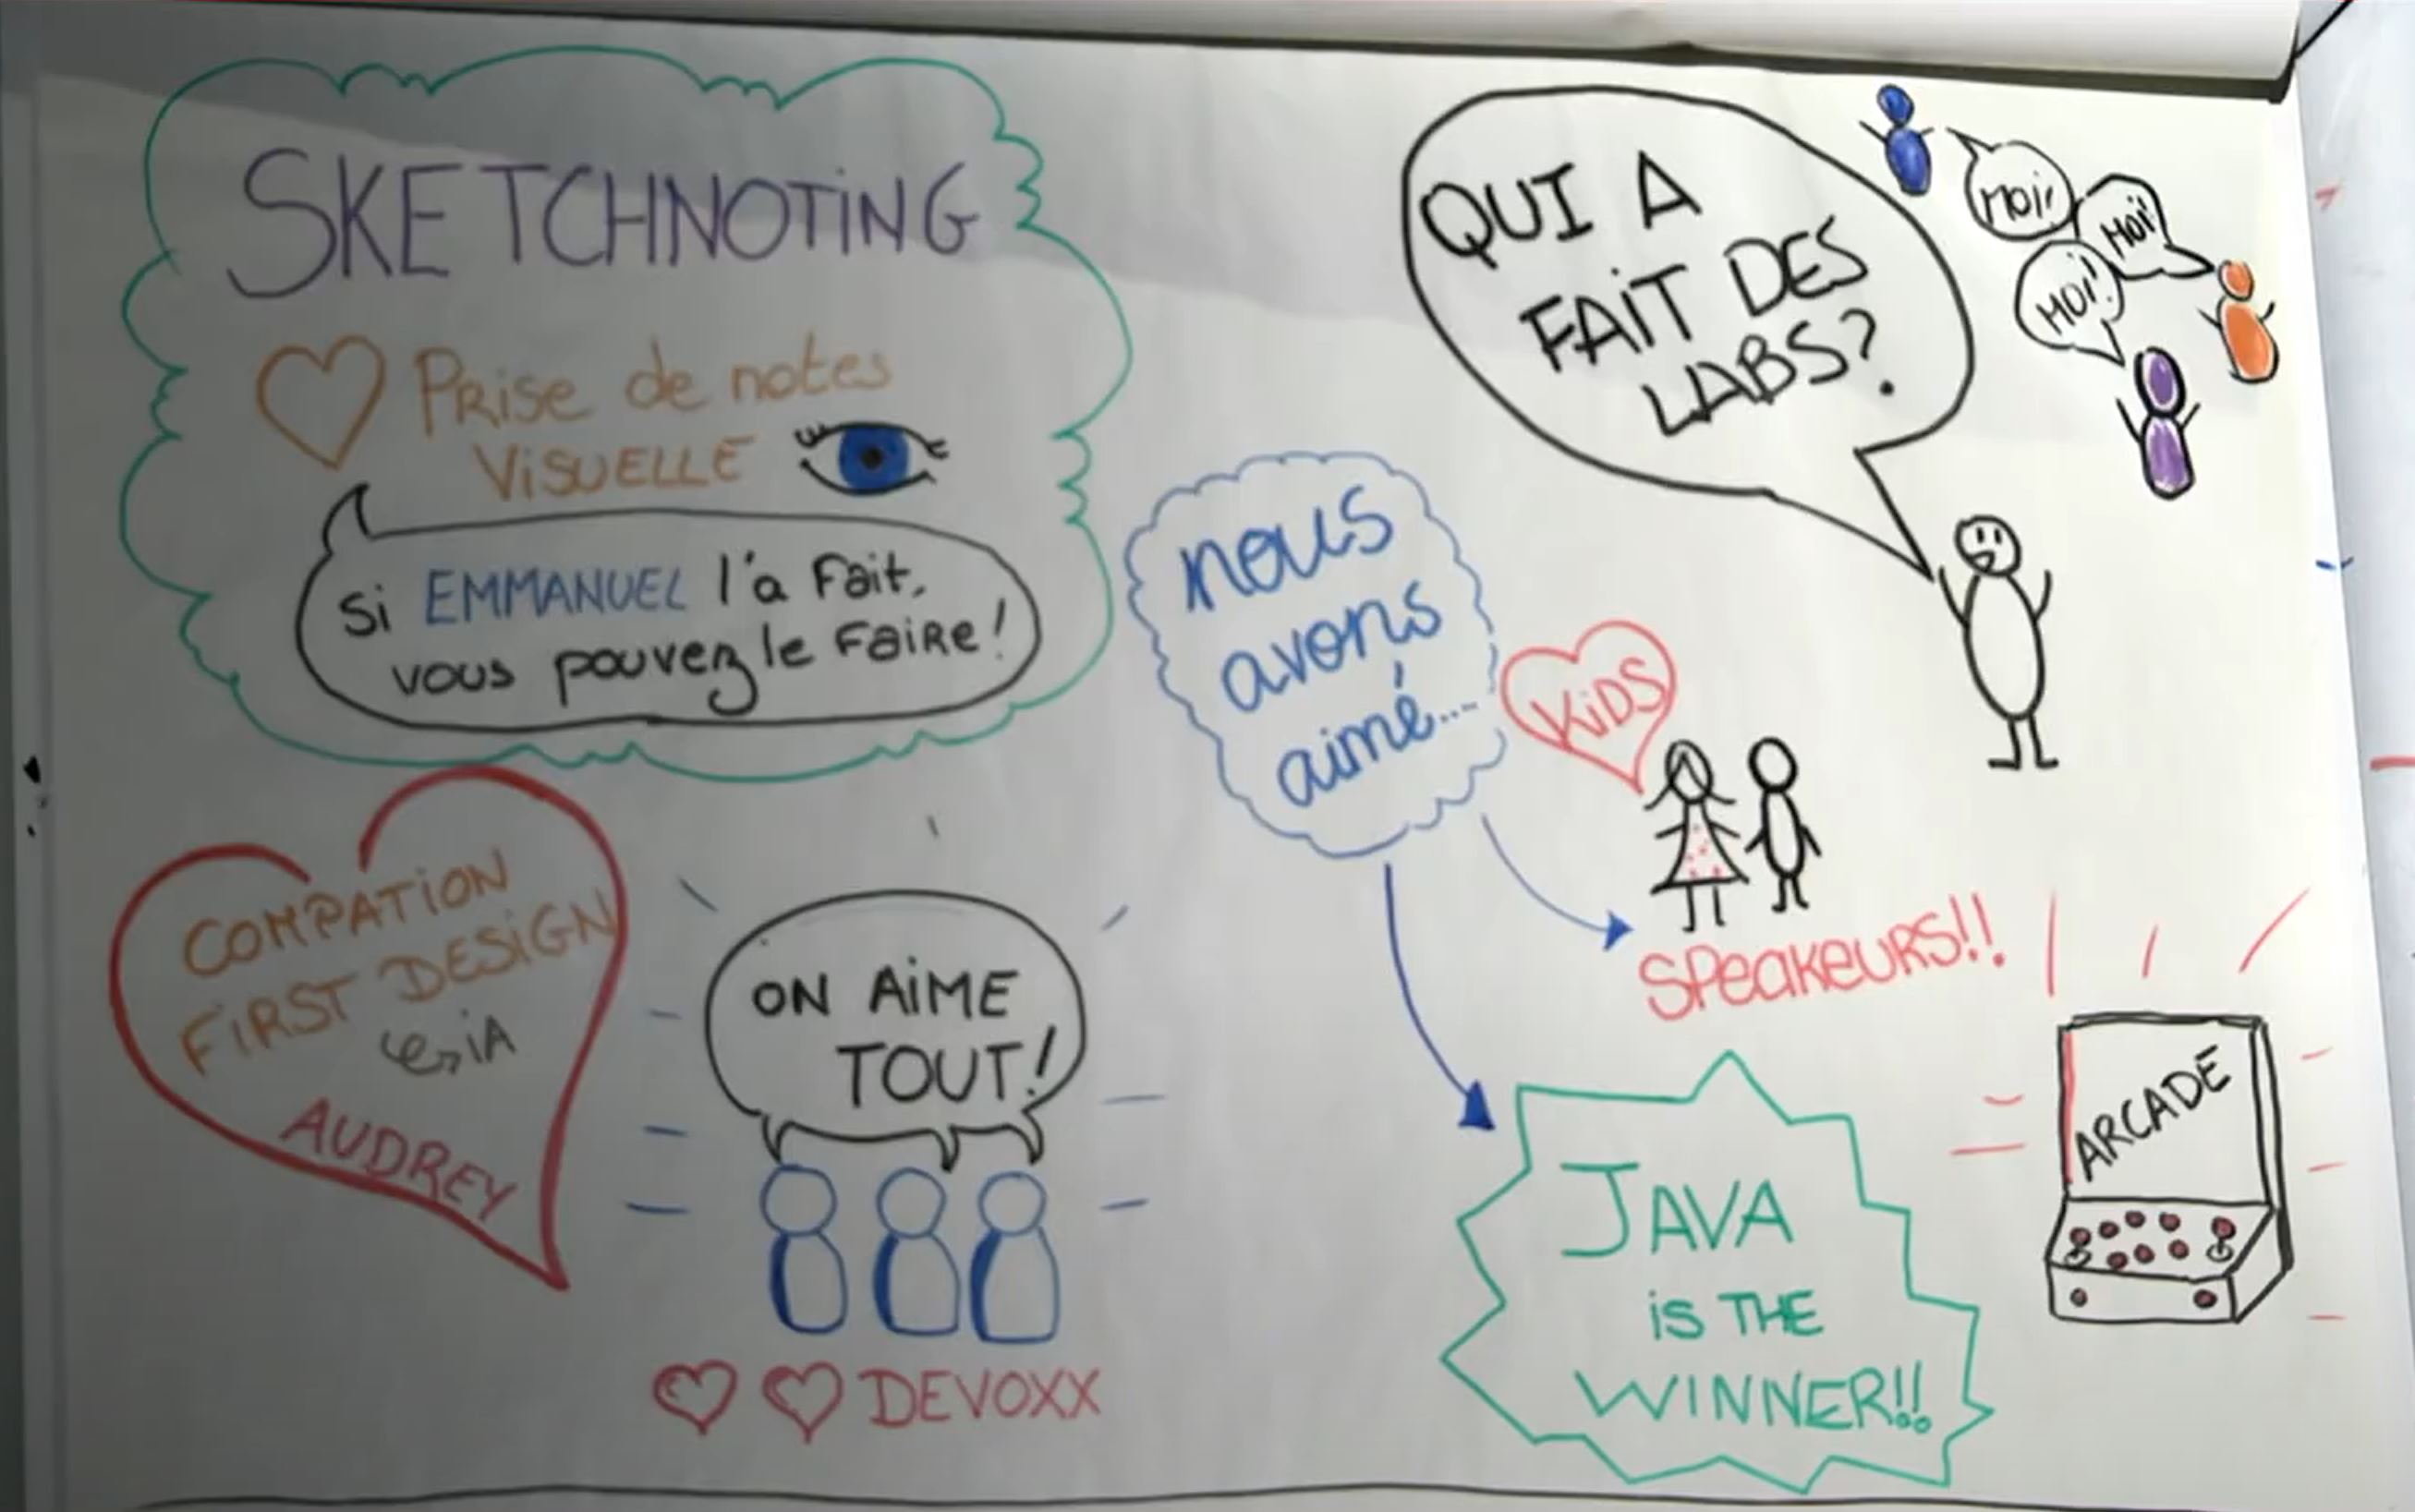 SKETCHNOTiNG
PRise de notes
ViSUELLE
Si EMMANUEL l'a Fait,
vous pouvez le FaiRe!
COMPATiON
FiRST DESiGN
iA
AUDREY
ON AiME
TOUT!
DEVOXX
nous
avons
aimé...
QUI A
FAiT DES
LABS?
MOi!
MOi!
MOi!
KiDS
SPeakeuRS!!
JAVA
iS THE
WiNNER!!
ARCADE